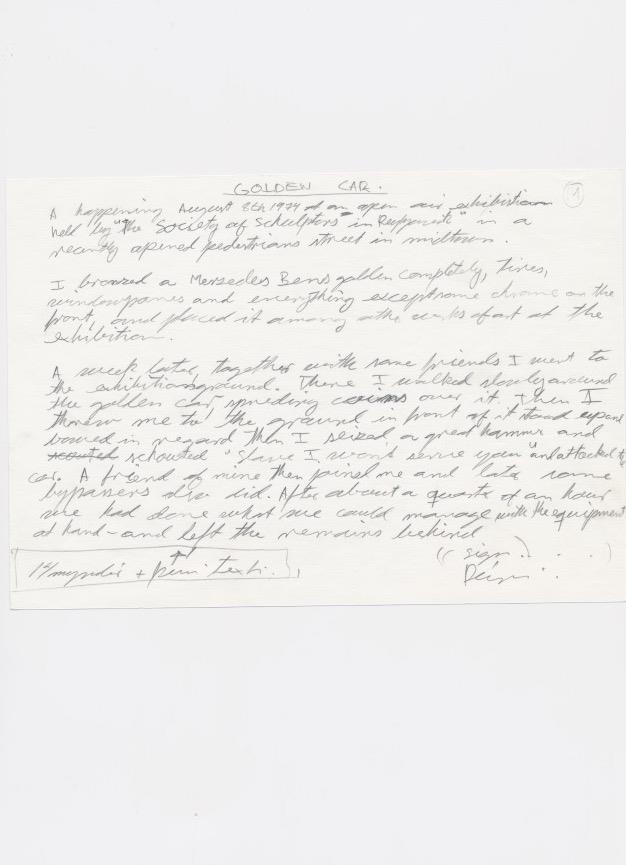 GOLDEN CAR.
1
A happening August 8th 1974 at an open air exhibition
held by "the Society of Sculptors in Reykjavik" in a
recently opened pedestrians street in midtown.
I bronzed a Mersedes Bens golden completely, tires,
windowpanes and everything except some chrome on the
front, and placed it among othe works of art at the
exhibition.
A week later, together with some friends I went to
the exhibitionground. There I walked slowly around
the golden car, spreding coins over it. Then I
threw me to the ground in front of it stood up and
bowed in regard then I seized a great hammer and
scouted schouted "Slave I wont serve you" and attacked the
car. A friend of mine then joined me and late some
bypassers also did. After about a quarte of an hour
we had done what we could manage with the equipment
at hand - and left the remains behind
(( sign. . . . )
14 myndir + texti.